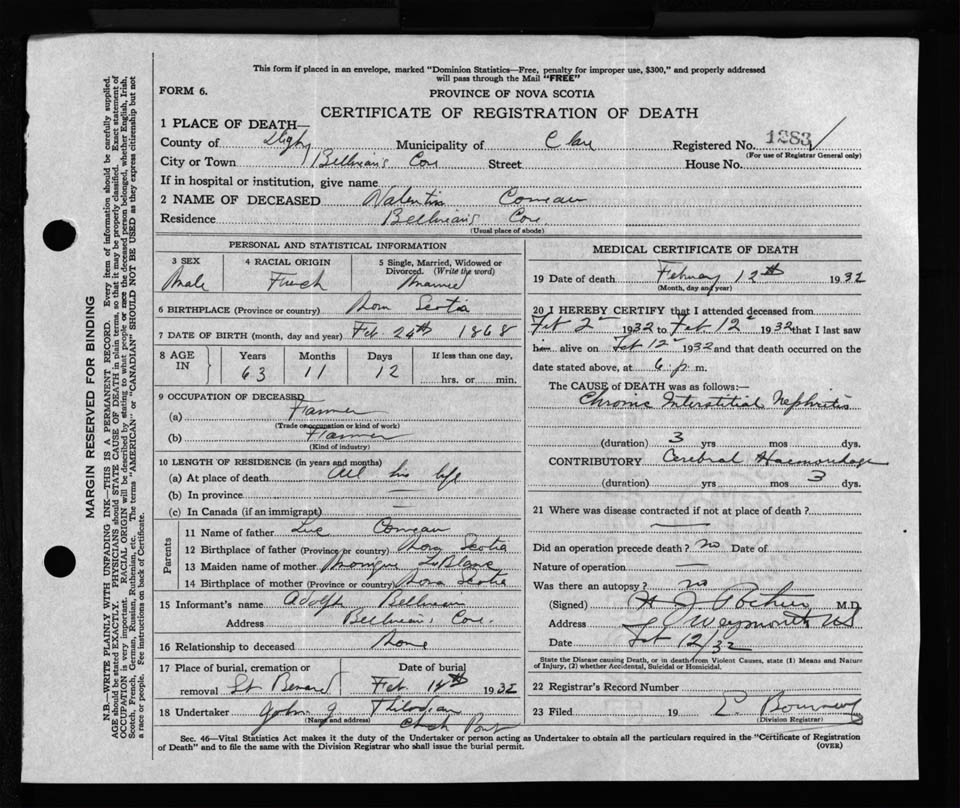 This form if placed in an envelope, marked "Dominion Statistics—Free, penalty for improper use, $300," and properly addressed
will pass through the Mail "FREE"
FORM 6.
PROVINCE OF NOVA SCOTIA
CERTIFICATE OF REGISTRATION OF DEATH
1 PLACE OF DEATH—
County of Digby Municipality of Clare Registered No. 1283
(For use of Registrar General only)
City or Town Belliveau's Cove Street House No.
If in hospital or institution, give name
2 NAME OF DECEASED Valentin Comeau
Residence Belliveau's Cove
(Usual place of abode)
PERSONAL AND STATISTICAL INFORMATION
3 SEX 4 RACIAL ORIGIN 5 Single, Married, Widowed or
Divorced. (Write the word)
Male French Married
6 BIRTHPLACE (Province or country) Nova Scotia
7 DATE OF BIRTH (month, day and year) Feb. 24th 1868
8 AGE IN Years Months Days If less than one day,
63 11 12 hrs. or min.
9 OCCUPATION OF DECEASED
(a) Farmer
(Trade occupation or kind of work)
(b) Farmer
(Kind of industry)
10 LENGTH OF RESIDENCE (in years and months)
(a) At place of death All his life
(b) In province —
(c) In Canada (if an immigrant)
Parents
11 Name of father Luc Comeau
12 Birthplace of father (Province or country) Nova Scotia
13 Maiden name of mother Monique LeBlanc
14 Birthplace of mother (Province or country) Nova Scotia
15 Informant's name Adolph Belliveau
Address Belliveau's Cove.
16 Relationship to deceased None
17 Place of burial, cremation or Date of burial
removal St Bernard Feb. 1932
18 Undertaker John
(Name and address)
MEDICAL CERTIFICATE OF DEATH
19 Date of death February 12th 1932
(Month, day and year)
20 I HEREBY CERTIFY that I attended deceased from
Feb 2 1932 to Feb 12 1932 that I last saw
him alive on Feb 12 1932 and that death occurred on the
date stated above, at 6 p. m.
The CAUSE of DEATH was as follows:—
Chronic Interstitial Nephritis
(duration) 3 yrs mos dys.
CONTRIBUTORY Cerebral Haemorrhage
(duration) yrs mos 3 dys.
21 Where was disease contracted if not at place of death?
Did an operation precede death? no Date of
Nature of operation —
Was there an autopsy? no
(Signed) M.D.
Address Weymouth NS
Date Feb 12/32
State the Disease causing Death, or in death from Violent Causes, state (1) Means and Nature
of Injury, (2) whether Accidental, Suicidal or Homicidal.
22 Registrar's Record Number
23 Filed 19
(Division Registrar)
Sec. 46—Vital Statistics Act makes it the duty of the Undertaker or person acting as Undertaker to obtain all the particulars required in the "Certificate of Registration
of Death" and to file the same with the Division Registrar who shall issue the burial permit.
(OVER)
MARGIN RESERVED FOR BINDING
N.B.—WRITE PLAINLY WITH UNFADING INK—THIS IS A PERMANENT RECORD. Every item of information should be carefully supplied.
AGE should be stated EXACTLY. PHYSICIANS should STATE CAUSE OF DEATH in plain terms, so that it may be properly classified. Exact statement of
OCCUPATION is very important. RACIAL ORIGIN will be described by stating to what people or race the deceased person belonged, whether English, Irish,
Scotch, French, German, Russian, Ruthenian, etc. The terms "AMERICAN" or "CANADIAN" SHOULD NOT BE USED as they express citizenship but not
a race or people. See instructions on back of Certificate.